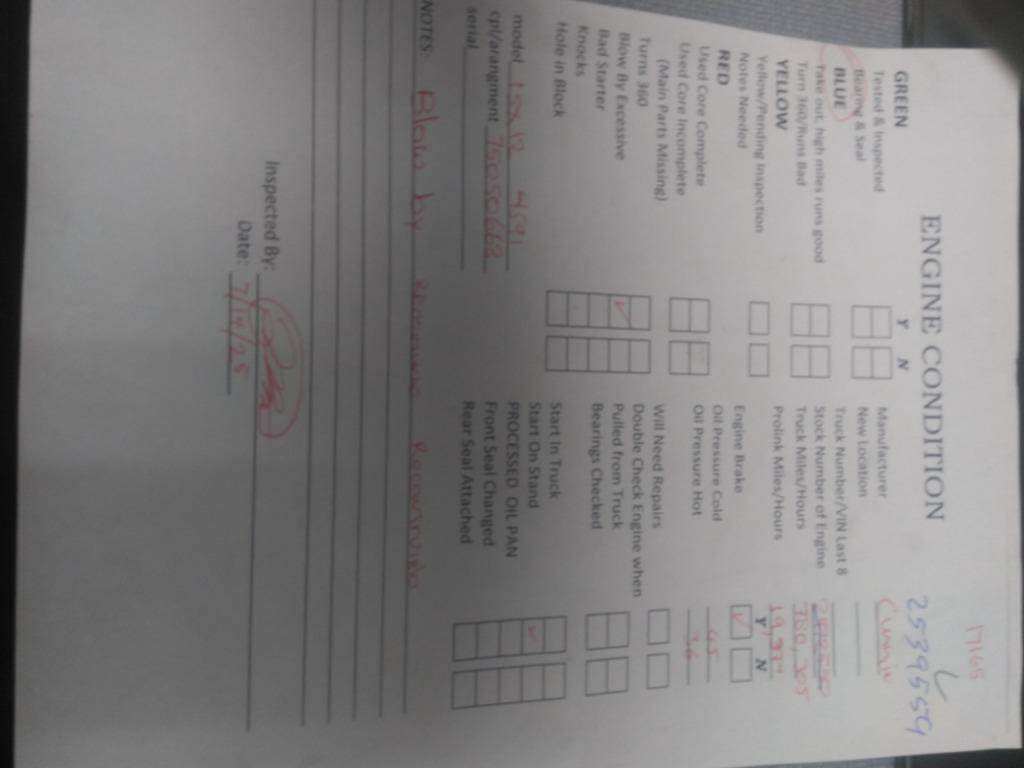 17165
L
25395559
ENGINE CONDITION
Y N
GREEN
Tested & Inspected
Bearing & Seal
BLUE
Take out, high miles runs good
Turn 360/Runs Bad
YELLOW
Yellow/Pending Inspection
Notes Needed
RED
Used Core Complete
Used Core Incomplete
(Main Parts Missing)
Turns 360
Blow By Excessive ✓
Bad Starter
Knocks
Hole in Block
model ISX12 4591
cpl/arangment 75050668
serial
Manufacturer
New Location
Truck Number/VIN Last 8
Stock Number of Engine
Truck Miles/Hours 780,305
Prolink Miles/Hours
Y N
Engine Brake ✓
Oil Pressure Cold 45
Oil Pressure Hot 36
Will Need Repairs
Double Check Engine when
Pulled from Truck
Bearings Checked
Start In Truck
Start On Stand ✓
PROCESSED OIL PAN
Front Seal Changed
Rear Seal Attached
NOTES: Blow by
Inspected By:
Date: 7/14/25